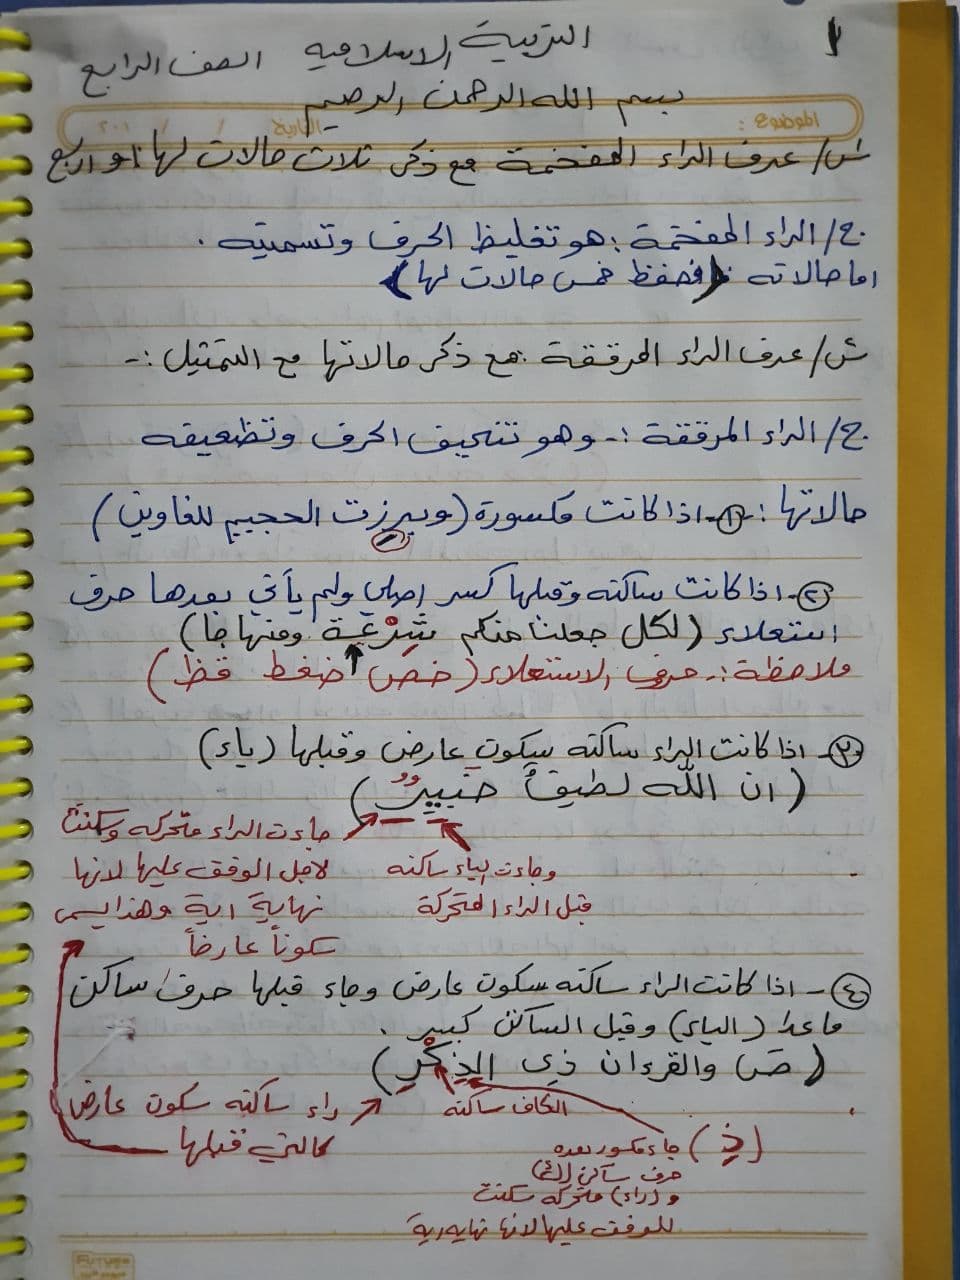 ١
التربية الاسلامية الصف الرابع
بسم الله الرحمن الرحيم
الموضوع: التاريخ / / ٢٠١
س/ عرف الراء المفخمة مع ذكر ثلاث حالات لها او اربع
ج/ الراء المفخمة: هو تغليظ الحرف وتسمينه.
اما حالاته (فحفظ خمس حالات لها)
س/ عرف الراء المرققة مع ذكر حالاتها مع التمثيل:-
ج/ الراء المرققة:- وهو تنحيف الحرف وتضعيفه
حالاتها: ①- اذا كانت مكسورة (وبرزت الحجيم للغاوين)
②- اذا كانت ساكنه وقبلها كسر اصلي ولم يأتي بعدها حرف
استعلاء (لكل جعلنا منكم شِرْعَة ومنهاجا)
ملاحظة:- حروف الاستعلاء (خص ضغط قظ)
③- اذا كانت الراء ساكنه سكون عارض وقبلها (ياء)
(ان اللّه لطيفٌ خبيرٌ)
جاءت الراء متحركه وسكنت
لاجل الوقف عليها لانها
نهاية اية وهذا يسمى
سكوناً عارضاً
وجاءت الياء ساكنه
قبل الراء المتحركة
④- اذا كانت الراء ساكنه سكون عارض وجاء قبلها حرف ساكن
ماعدا (الياء) وقبل الساكن كسر.
(ص والقرءان ذي الذِكْرِ)
الكاف ساكنه
راء ساكنه سكون عارض
كالتي قبلها
(ذِ) جاء مكسور بعده
حرف ساكن
و(راء) متحركه سكنت
للوقف عليها لانها نهايه اية
FUTURE